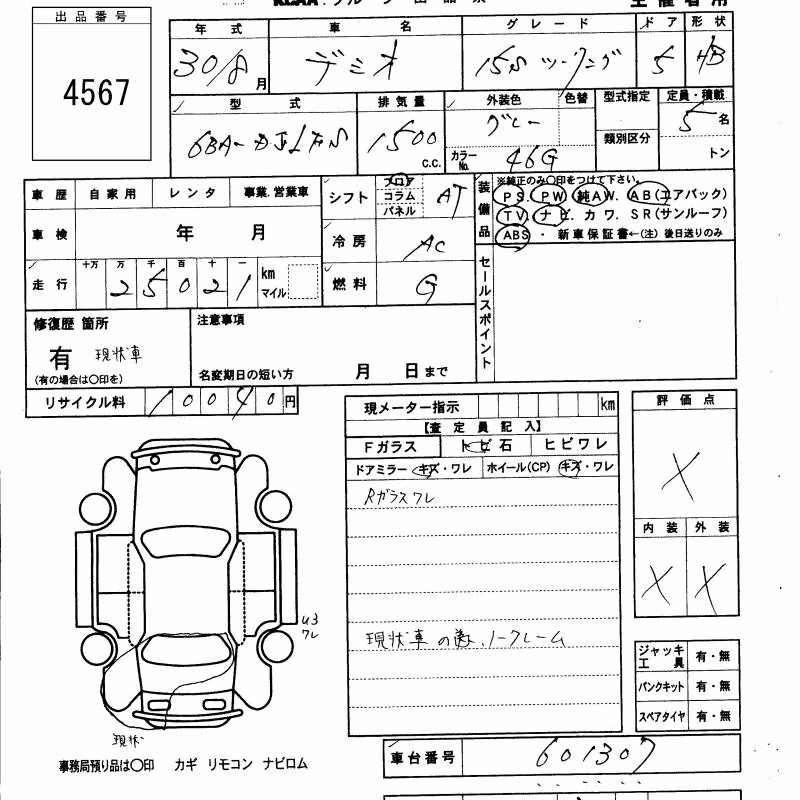 出品番号
4567
年式 車名 グレード ドア 形状
30/8月 デミオ 15S ツーリング 5 HB
型式 排気量 外装色 色替 型式指定 定員・積載
6BA-DJLFS 1500 c.c. グレー 5名
カラーNo. 46G 類別区分 トン
車歴 自家用 レンタ 事業.営業車
車検 年 月
走行 十万 万 千 百 十 一 km マイル
25021
シフト フロア コラム パネル AT
冷房 AC
燃料 G
装備品 ※純正のみ〇印をつけて下さい。
PS. PW. 純AW. AB(エアバック)
TV. ナビ. カワ. SR(サンルーフ)
ABS ・ 新車保証書←(注)後日送りのみ
セールスポイント
修復歴 箇所
有 現状車
(有の場合は〇印を)
注意事項
名変期日の短い方 月 日まで
リサイクル料 10040円
現メーター指示 km
【査定員記入】
Fガラス トビ石 ヒビワレ
ドアミラー キズ・ワレ ホイール(CP) キズ・ワレ
Rガラスワレ
現状車の為、ノークレーム
評価点
X
内装 外装
X X
U3
ワレ
現状
ジャッキ工具 有・無
パンクキット 有・無
スペアタイヤ 有・無
事務局預り品は〇印 カギ リモコン ナビロム
車台番号 601307